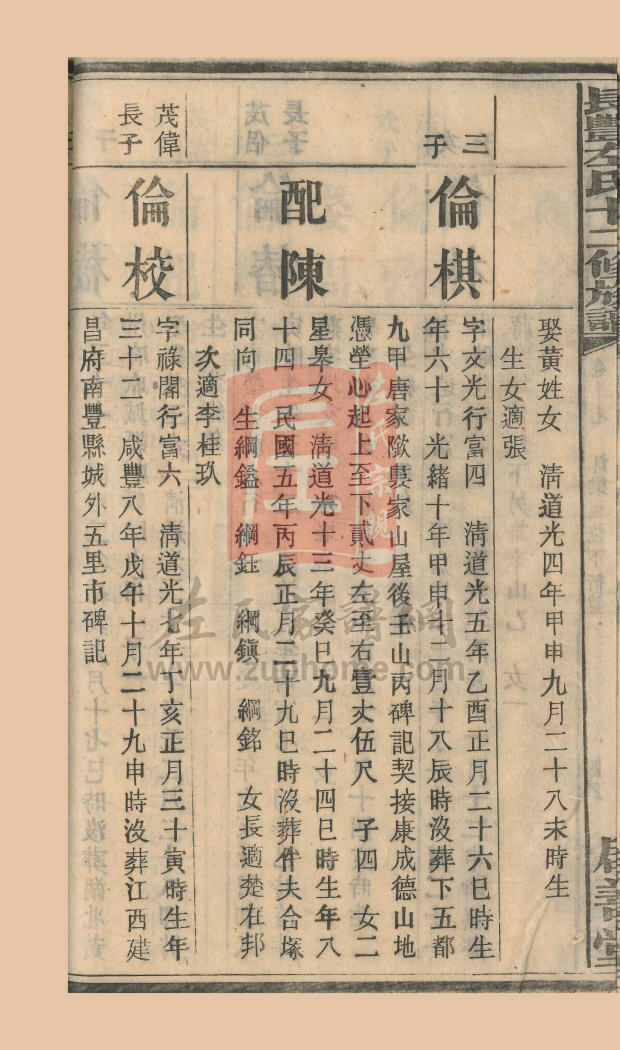 長豐左氏十二修族譜
娶黃姓女　清道光四年甲申九月二十八未時生
生女適張
三子
倫棋
字文光行富四　清道光五年乙酉正月二十六巳時生
年六十　光緒十年甲申十二月十八辰時沒葬下五都
九甲唐家家山屋後壬山丙碑記契接康成德山地
憑塋心起上至下貳丈左至右壹丈伍尺　子四　女二
配陳
星皋女　清道光十三年癸巳九月二十四巳時生年八
十四　民國五年丙辰正月二十九巳時沒葬件夫合塚
同向　生綱鎰　綱鈺　綱鎭　綱銘　女長適楚在邦
次適李桂玖
茂偉
長子
倫校
字祿閣行富六　清道光七年丁亥正月三十寅時生年
三十二　咸豐八年戊午十月二十九申時沒葬江西建
昌府南豐縣城外五里市碑記
左氏家譜網
www.zuohome.com
左氏宗親